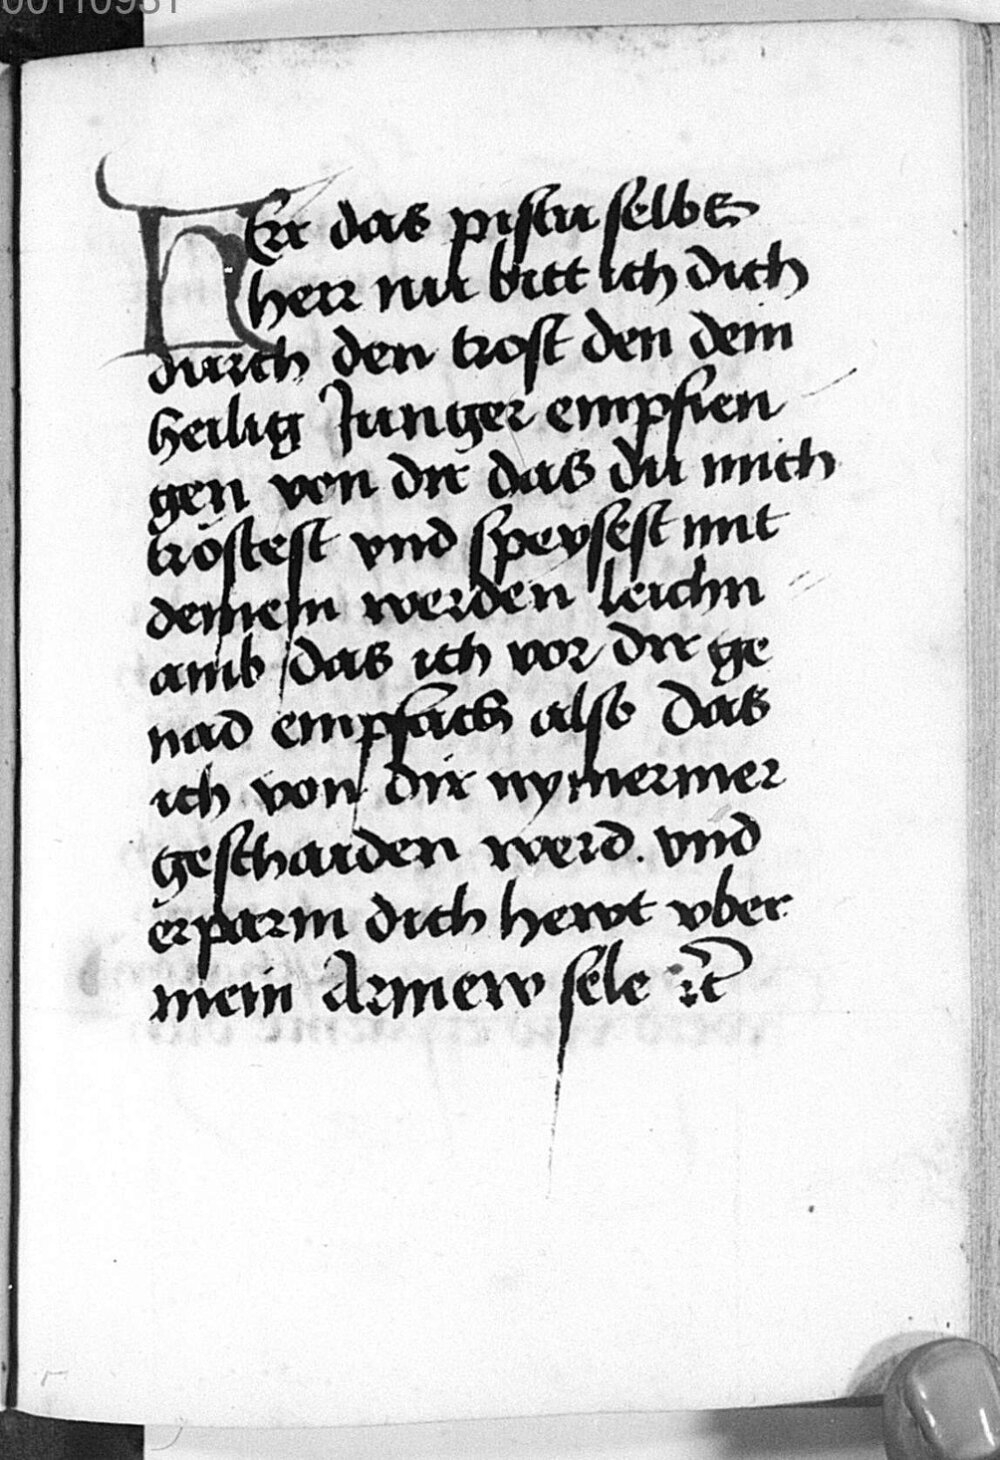 00110931
HEr das pistu selbs
herr nu bitt ich dich
durch den trost den dein
heilig Junger empfien
gen von dir das du mich
tröstest vnd speysest mit
deinem werden leichn
amb das ich vor dir ge
nad empfach also das
ich von dir nymermer
geschaiden werd. vnd
erparm dich hewt vber
mein Armew sele ꝛc̃